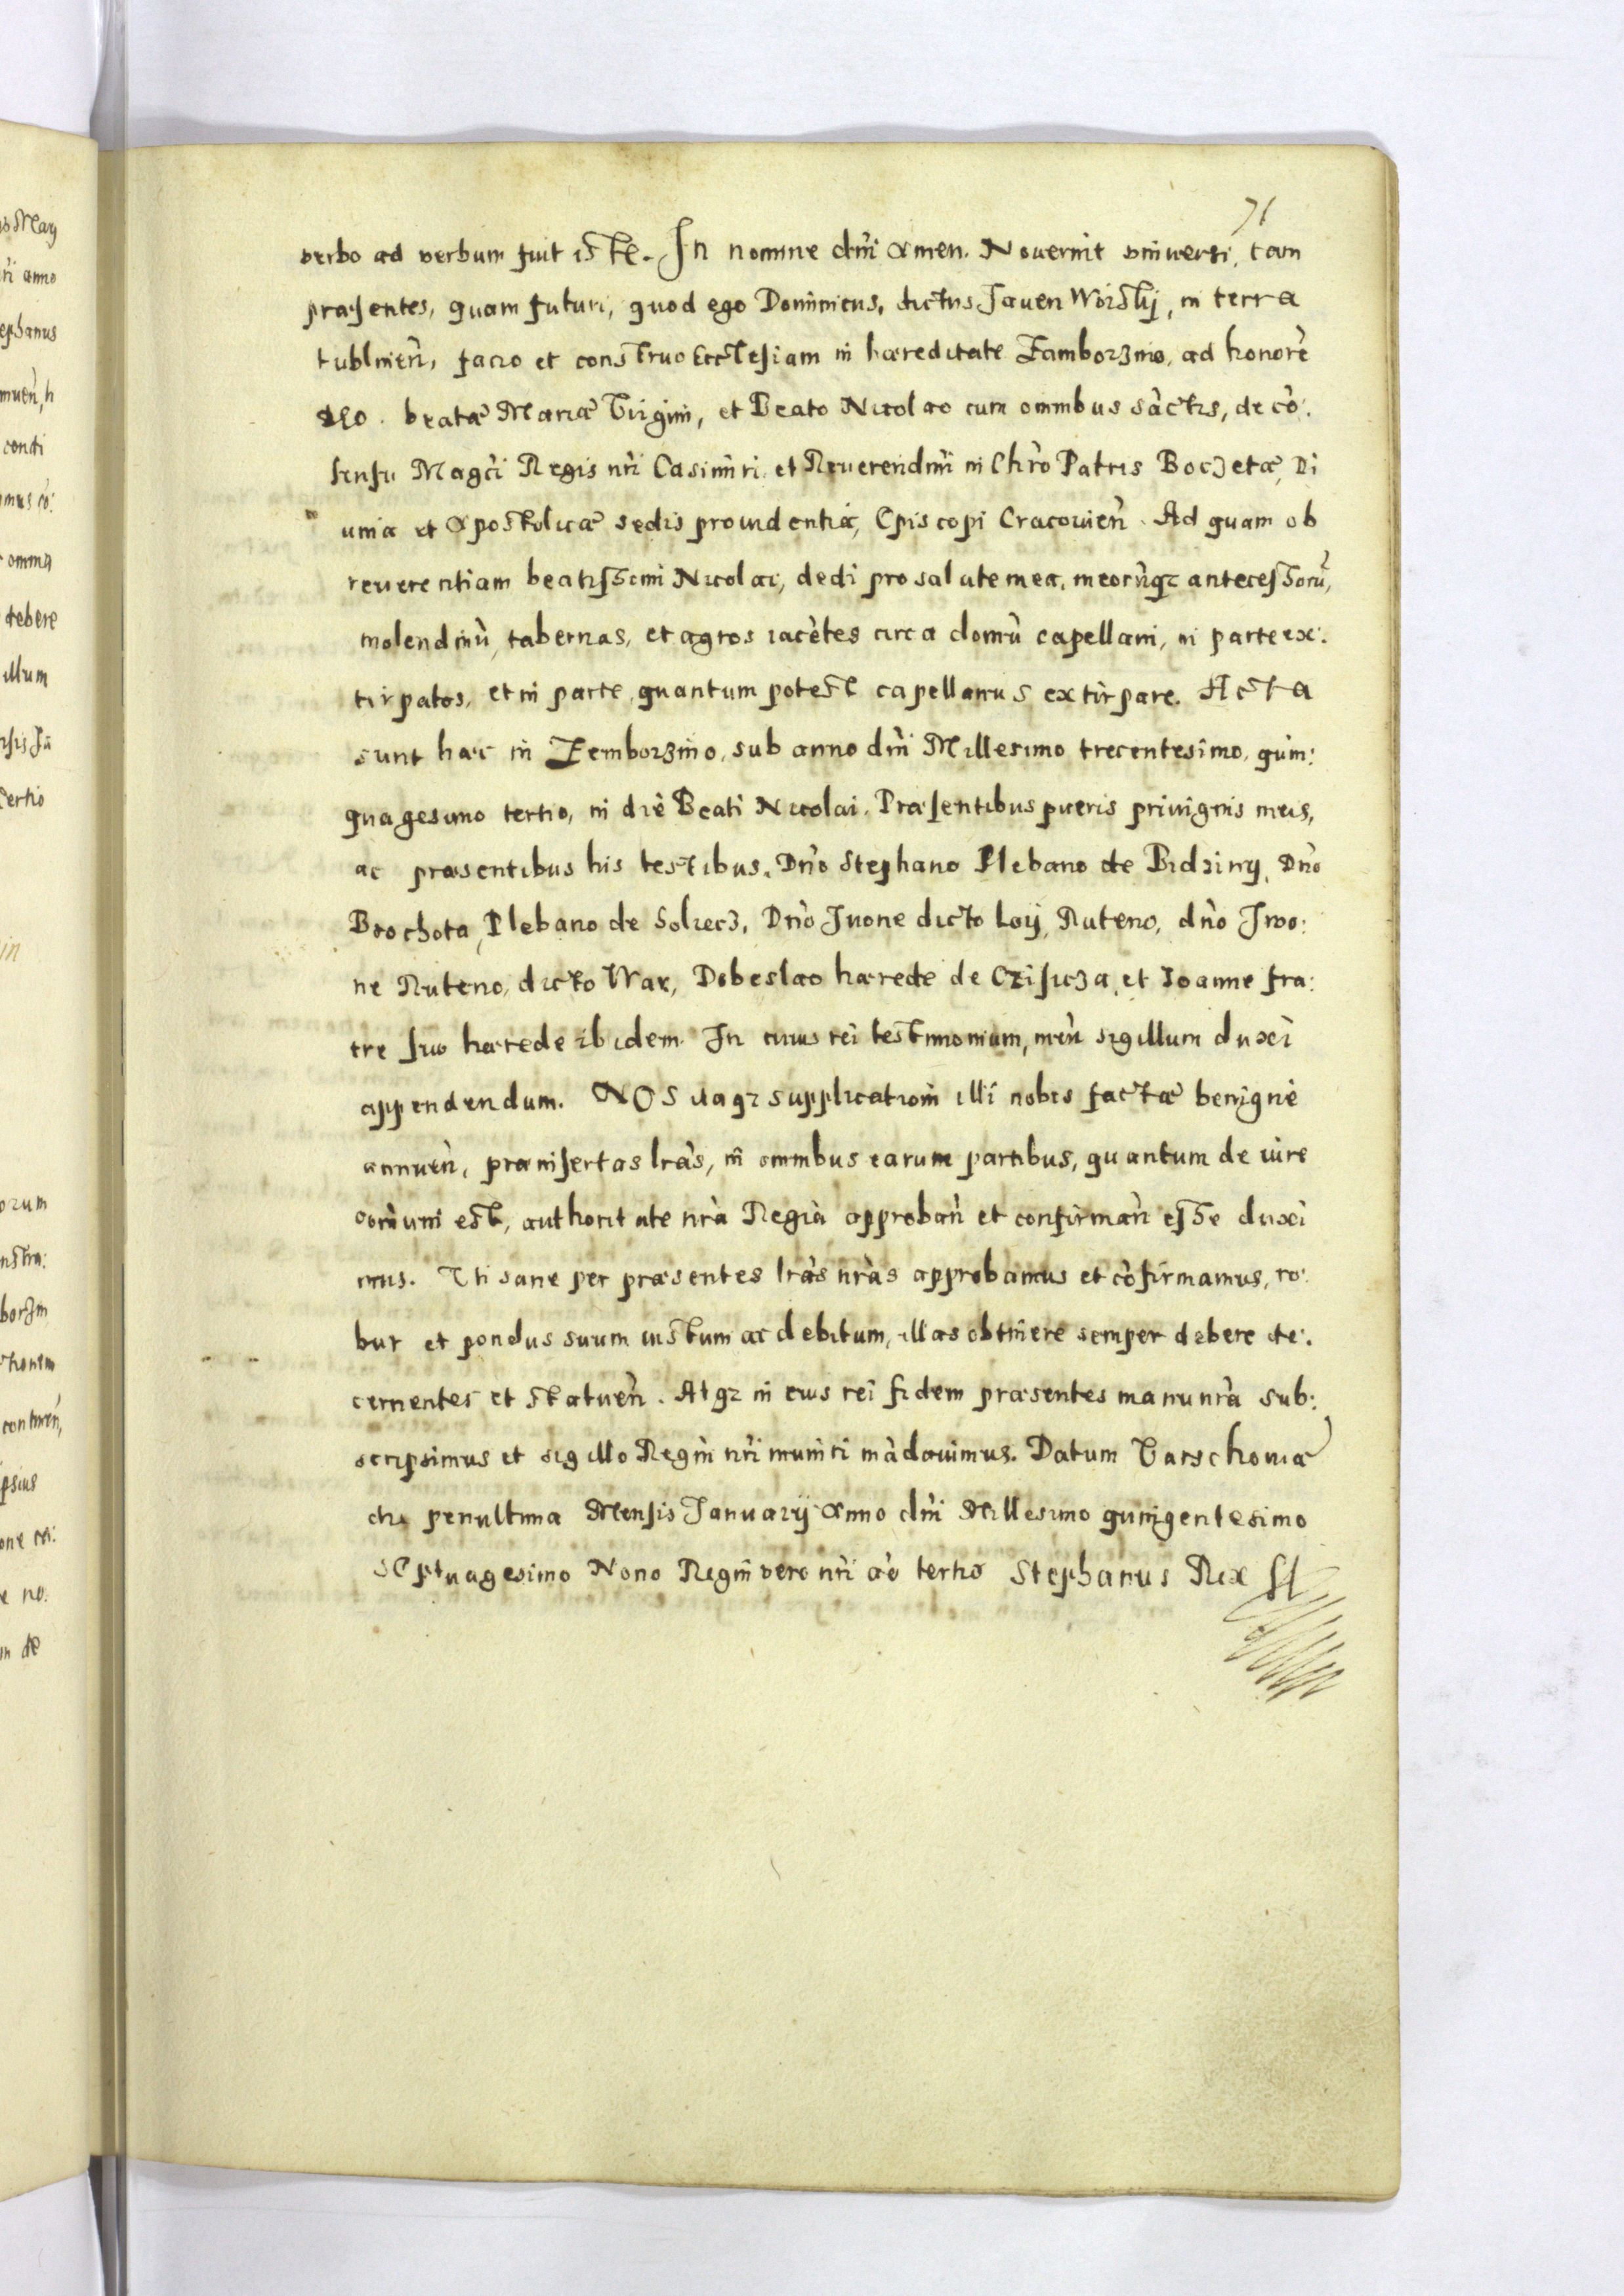 71
verbo ad verbum fuit iste. In nomine dni͂ amen. Noverint universi, tam
præsentes, quam futuri, quod ego Dominicus, dictus Javen Woisthij, in terra
tublinen̄, facio et construo Ecclesiam in hæreditate Zamborzino, ad honorē
deo. beatæ Mariæ Virgini, et Beato Nicolao cum omnibus sāctis, de cō:
sensu Magci̇ Regis nr̄i Casimiri, et Reverendmi̇ in Chr̄o Patris Boczetæ, Di
uina et Apostolicæ sedis prouidentia, Episcopi Cracouien̄. Ad quam ob
reuerentiam beatissimi Nicolai, dedi pro salute mea, meorūq₃ antecessorū,
molendinū, tabernas, et agros iacētes circa domū capellani, in parte ex:
tirpatos, et in parte, quantum potest capellanus extirpare. Acta
sunt hæc in Zemborzino, sub anno dni͂ Millesimo trecentesimo, quin:
quagesimo tertio, in die Beati Nicolai. Præsentibus pueris privignis meis,
ac præsentibus his testibus. Dn̄o Stephano Plebano de Bidziny, Dn̄o
Brochota, Plebano de Soliecz, Dn̄o Juone dicto Loij, Ruteno, dn̄o Jwo:
ne Ruteno, dicto Wax, Dobeslao hærede de Czisicza, et Joanne fra:
tre suo hærede ibidem. In cuius rei testimonium, meū sigillum duxi
appendendum. NOS itaq₃ supplicationi illi nobis factæ benigne
annuen̄, præinsertas lrās, in omnibus earum partibus, quantum de iure
com̄uni est, authoritate nrā Regia approban̄ et confirman̄ esse duxi
mus. Uti sane per præsentes lrās nrās approbamus et cōfirmamus, ro:
bur et pondus suum iustum ac debitum, illas obtinere semper debere de:
cernentes et statuen̄. Atq₃ in eius rei fidem præsentes manu nrā sub:
scripsimus et sigillo Regni nr̄i muniri mādauimus. Datum Varschouiæ
die penultima Mensis Januarij Anno dni͂ Millesimo quingentesimo
septuagesimo Nono Regni vero nr̄i aō tertio Stephanus Rex